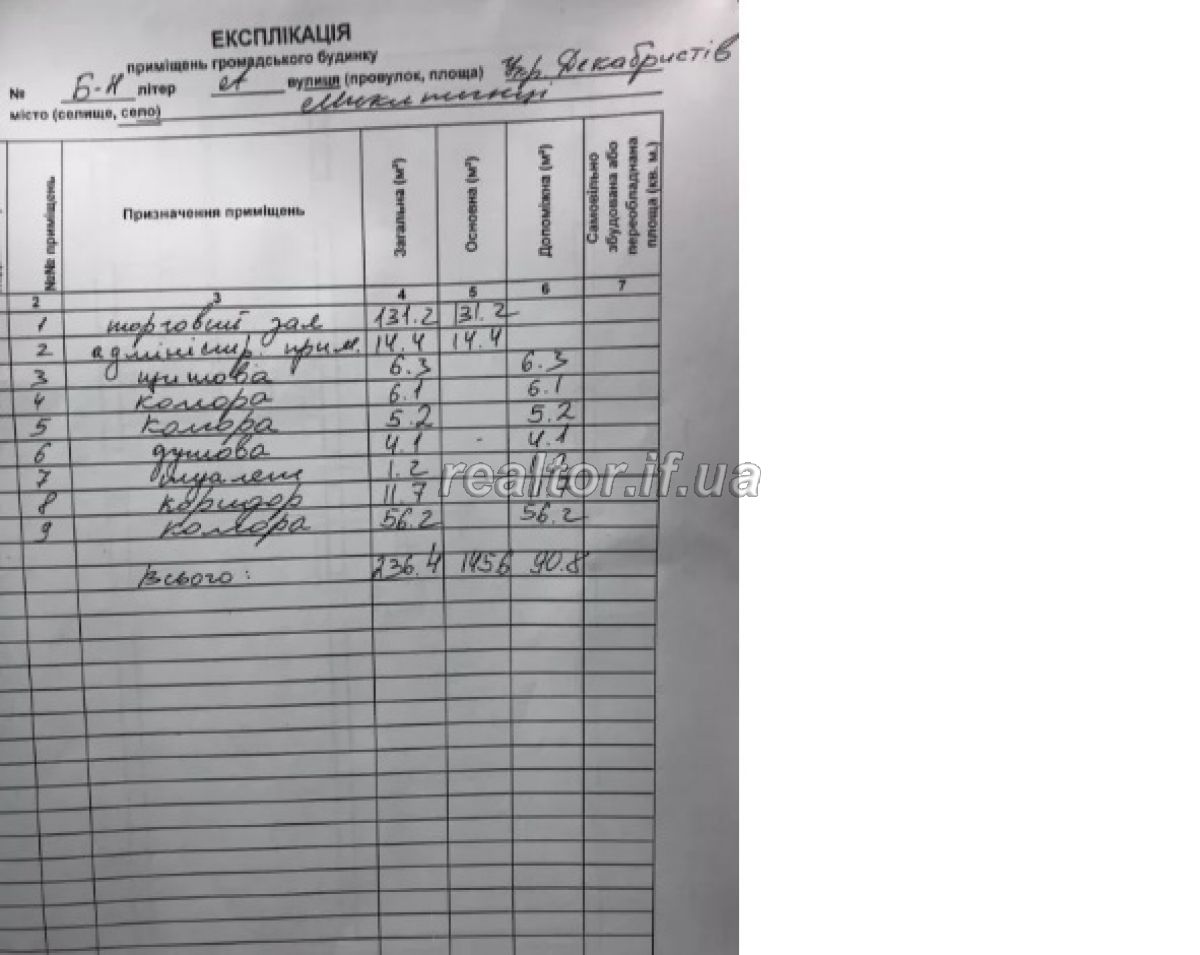 ЕКСПЛІКАЦІЯ
приміщень громадського будинку
№ Б-Н літер А вулиця (провулок, площа) Укр. Декабристів
місто (селище, село) Микитинці
№№ приміщень Призначення приміщень Загальна (м²) Основна (м²) Допоміжна (м²) Самовільно збудована або переобладнана площа (кв. м.)
2 3 4 5 6 7
1 торговий зал 131.2 131.2
2 адміністр. прим. 14.4 14.4
3 щитова 6.3 6.3
4 комора 6.1 6.1
5 комора 5.2 5.2
6 душова 4.1 - 4.1
7 туалет 1.2
8 коридор 11.7
9 комора 56.2 56.2
Всього: 236.4 145.6 90.8
realtor.if.ua